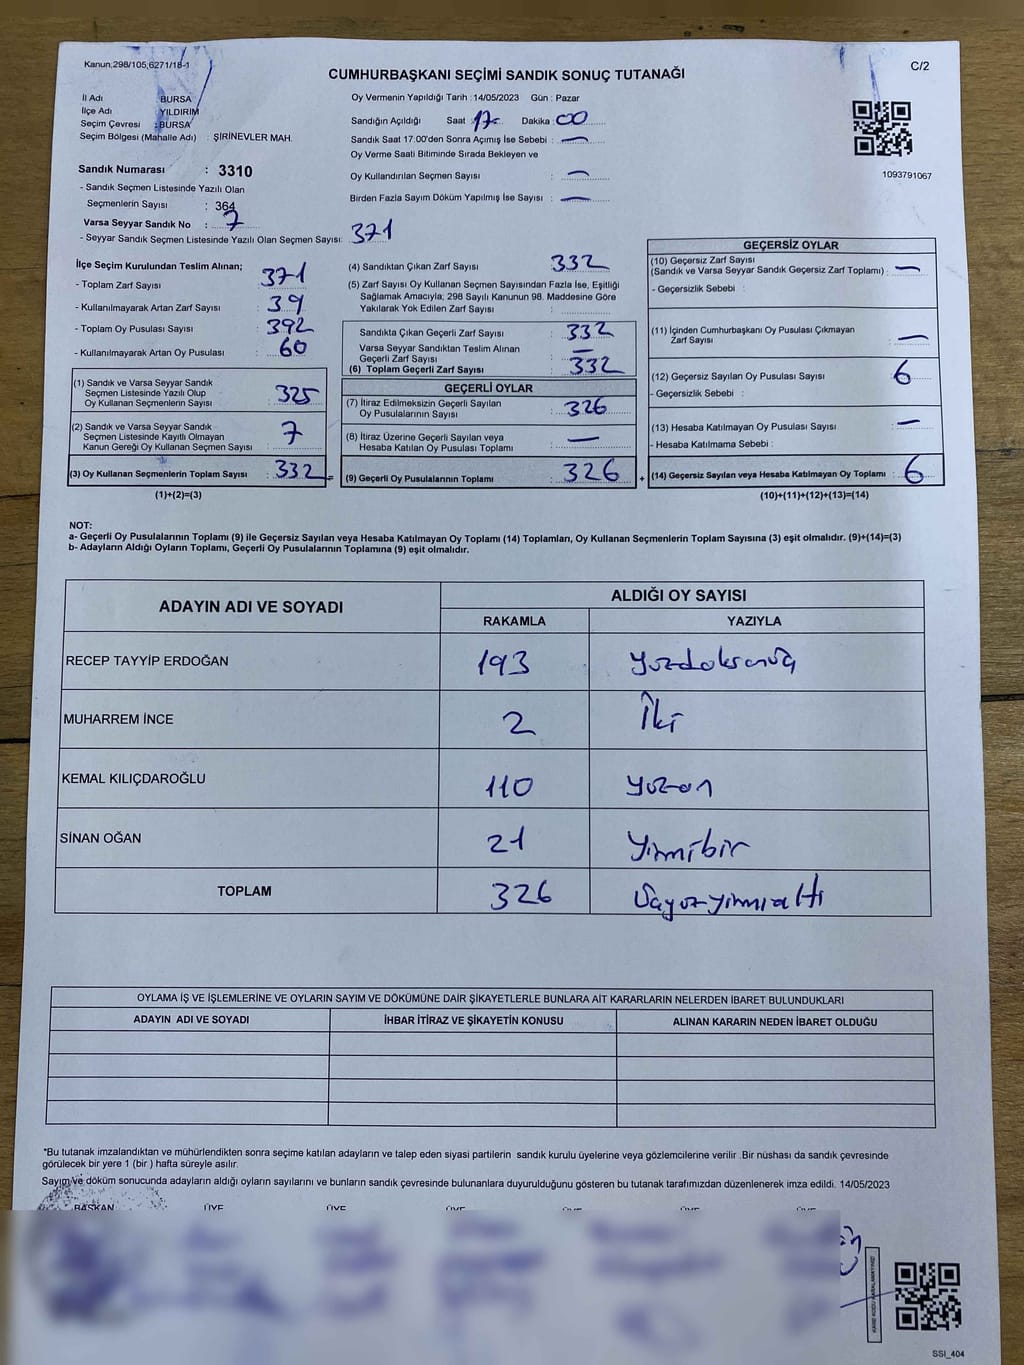 Kanun;298/105,6271/18-1
C/2
CUMHURBAŞKANI SEÇİMİ SANDIK SONUÇ TUTANAĞI
İl Adı : BURSA
İlçe Adı : YILDIRIM
Seçim Çevresi : BURSA
Seçim Bölgesi (Mahalle Adı) : ŞİRİNEVLER MAH.
Oy Vermenin Yapıldığı Tarih :14/05/2023 Gün : Pazar
Sandığın Açıldığı Saat : 17 Dakika : 00
Sandık Saat 17:00'den Sonra Açımış İse Sebebi : —
Oy Verme Saati Bitiminde Sırada Bekleyen ve
Oy Kullandırılan Seçmen Sayısı : —
Birden Fazla Sayım Döküm Yapılmış İse Sayısı : —
1093791067
Sandık Numarası : 3310
- Sandık Seçmen Listesinde Yazılı Olan
Seçmenlerin Sayısı : 364
Varsa Seyyar Sandık No : 7
- Seyyar Sandık Seçmen Listesinde Yazılı Olan Seçmen Sayısı: 371
İlçe Seçim Kurulundan Teslim Alınan;
- Toplam Zarf Sayısı : 371
- Kullanılmayarak Artan Zarf Sayısı : 39
- Toplam Oy Pusulası Sayısı : 392
- Kullanılmayarak Artan Oy Pusulası : 60
(1) Sandık ve Varsa Seyyar Sandık
Seçmen Listesinde Yazılı Olup
Oy Kullanan Seçmenlerin Sayısı : 325
(2) Sandık ve Varsa Seyyar Sandık
Seçmen Listesinde Kayıtlı Olmayan
Kanun Gereği Oy Kullanan Seçmen Sayısı : 7
(3) Oy Kullanan Seçmenlerin Toplam Sayısı : 332 =
(1)+(2)=(3)
(4) Sandıktan Çıkan Zarf Sayısı : 332
(5) Zarf Sayısı Oy Kullanan Seçmen Sayısından Fazla İse, Eşitliği
Sağlamak Amacıyla; 298 Sayılı Kanunun 98. Maddesine Göre
Yakılarak Yok Edilen Zarf Sayısı :
Sandıkta Çıkan Geçerli Zarf Sayısı : 332
Varsa Seyyar Sandıktan Teslim Alınan
Geçerli Zarf Sayısı : —
(6) Toplam Geçerli Zarf Sayısı : 332
GEÇERLİ OYLAR
(7) İtiraz Edilmeksizin Geçerli Sayılan
Oy Pusulalarının Sayısı : 326
(8) İtiraz Üzerine Geçerli Sayılan veya
Hesaba Katılan Oy Pusulası Toplamı : —
(9) Geçerli Oy Pusulalarının Toplamı : 326 +
GEÇERSİZ OYLAR
(10) Geçersiz Zarf Sayısı
(Sandık ve Varsa Seyyar Sandık Geçersiz Zarf Toplamı) : —
- Geçersizlik Sebebi :
(11) İçinden Cumhurbaşkanı Oy Pusulası Çıkmayan
Zarf Sayısı : —
(12) Geçersiz Sayılan Oy Pusulası Sayısı : 6
- Geçersizlik Sebebi :
(13) Hesaba Katılmayan Oy Pusulası Sayısı : —
- Hesaba Katılmama Sebebi :
(14) Geçersiz Sayılan veya Hesaba Katılmayan Oy Toplamı : 6
(10)+(11)+(12)+(13)=(14)
NOT:
a- Geçerli Oy Pusulalarının Toplamı (9) ile Geçersiz Sayılan veya Hesaba Katılmayan Oy Toplamı (14) Toplamları, Oy Kullanan Seçmenlerin Toplam Sayısına (3) eşit olmalıdır. (9)+(14)=(3)
b- Adayların Aldığı Oyların Toplamı, Geçerli Oy Pusulalarının Toplamına (9) eşit olmalıdır.
ADAYIN ADI VE SOYADI ALDIĞI OY SAYISI
RAKAMLA YAZIYLA
RECEP TAYYİP ERDOĞAN 193 Yüzdoksanüç
MUHARREM İNCE 2 İki
KEMAL KILIÇDAROĞLU 110 Yüz-on
SİNAN OĞAN 21 Yirmibir
TOPLAM 326 Üçyüzyirmialtı
OYLAMA İŞ VE İŞLEMLERİNE VE OYLARIN SAYIM VE DÖKÜMÜNE DAİR ŞİKAYETLERLE BUNLARA AİT KARARLARIN NELERDEN İBARET BULUNDUKLARI
ADAYIN ADI VE SOYADI İHBAR İTİRAZ VE ŞİKAYETİN KONUSU ALINAN KARARIN NEDEN İBARET OLDUĞU
*Bu tutanak imzalandıktan ve mühürlendikten sonra seçime katılan adayların ve talep eden siyasi partilerin sandık kurulu üyelerine veya gözlemcilerine verilir .Bir nüshası da sandık çevresinde
görülecek bir yere 1 (bir ) hafta süreyle asılır.
Sayım ve döküm sonucunda adayların aldığı oyların sayılarını ve bunların sandık çevresinde bulunanlara duyurulduğunu gösteren bu tutanak tarafımızdan düzenlenerek imza edildi. 14/05/2023
BAŞKAN ÜYE ÜYE ÜYE ÜYE ÜYE
SSI_404